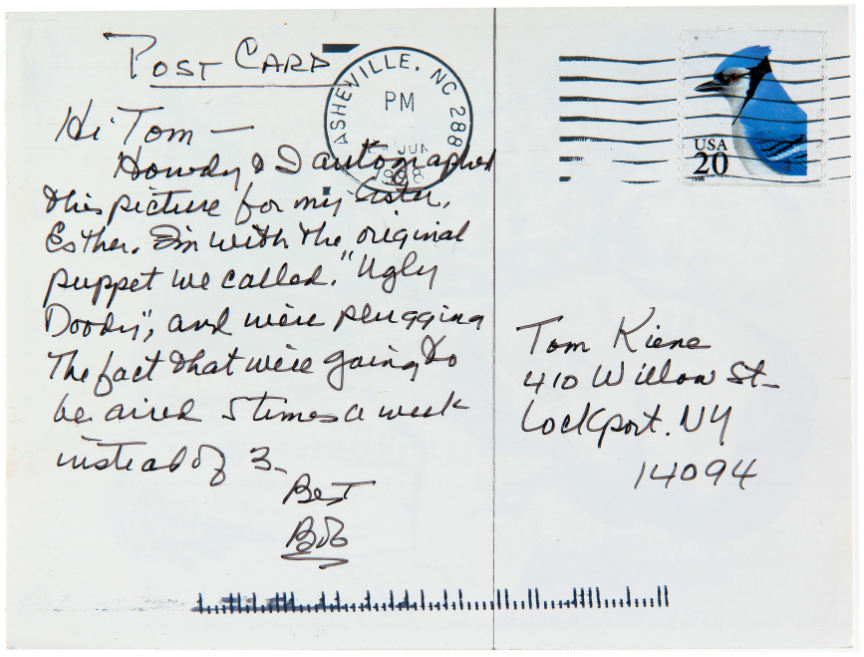 POST CARD
ASHEVILLE, NC 288
PM
JUN
1998
USA
20
1995
Hi Tom —
Howdy & I autographed
this picture for my sister,
Esther. I'm with the original
puppet we called. "Ugly
Doody", and we're plugging
the fact that we're going to
be aired 5 times a week
instead of 3.
Best
Bob
Tom Kiene
410 Willow St.
Lockport. NY
14094